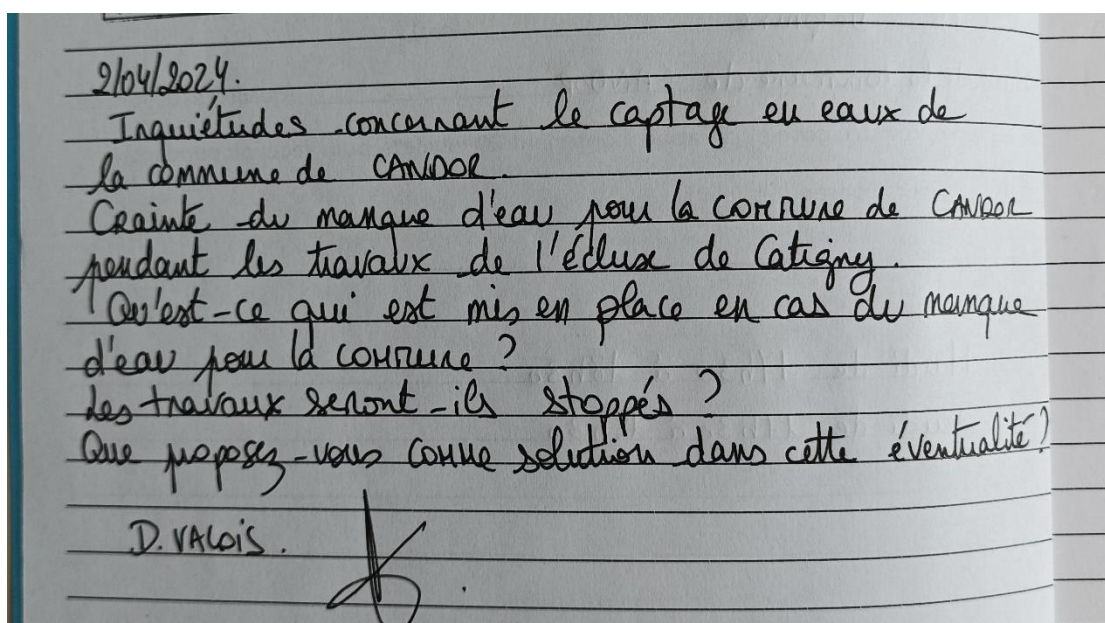 2/04/2024.
Inquiétudes concernant le captage en eaux de
la commune de CANDOR.
Crainte du manque d'eau pour la commune de CANDOR
pendant les travaux de l'écluse de Catigny.
Qu'est-ce qui est mis en place en cas du manque
d'eau pour la commune ?
Les travaux seront-ils stoppés ?
Que proposez-vous comme solution dans cette éventualité ?
D. VALOIS.